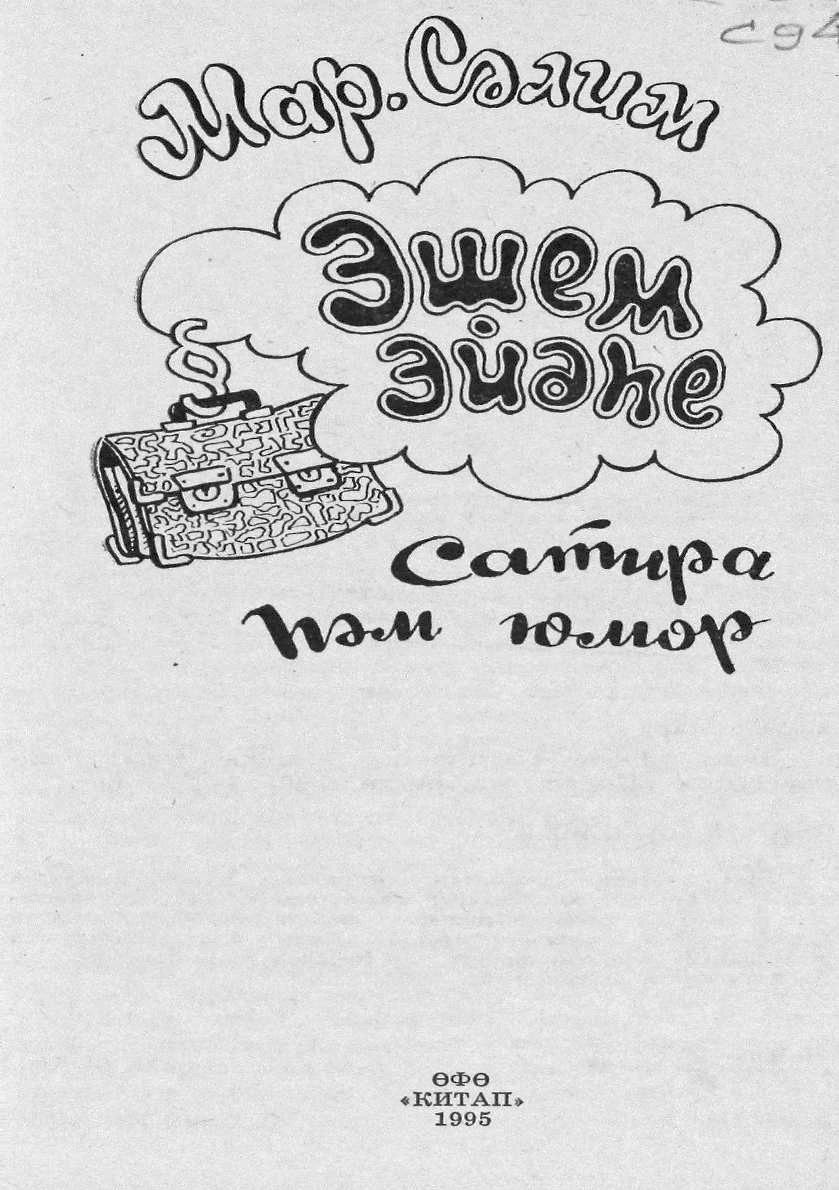 с94
Мар. Сәлим
Эшем
эйәһе
Сатира
һәм юмор
ӨФӨ
«КИТАП»
1995